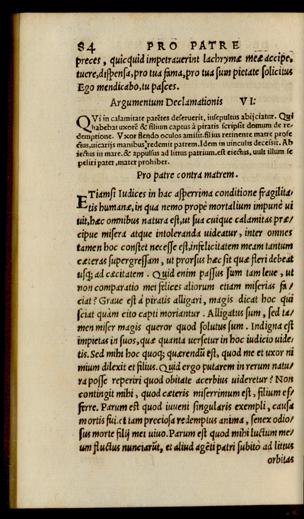 84 PRO PATRE
preces, quicquid impetrauerint lachrymæ meæ accipe,
tuere, dispensa, pro tua fama, pro tua sum pietate solicitus
Ego mendicabo, tu pasces.
Argumentum Declamationis VI:
QVi in calamitate parétes deseruerit, insepultus abijciatur. Qui
habebat uxoré & filium captus à piratis scripsit domum de re-
demptione. Vxor flendo oculos amisit. filius retinente matre profe
ctus, uicarijs manibus redemit patrem. Idem in uinculis decessit. Ab
iectus in mare, & appulsus ad littus patrium, est eiectus, uult illum se
peliri pater, mater prohibet.
Pro patre contra matrem.
ETiamsi Iudices in hac asperrima conditione fragilita-
tis humanæ, in qua nemo propè mortalium impune ui
uit, hæc omnibus natura est, ut sua cuique calamitas præ/
cipue misera atque intoleranda uideatur, inter omnes
tamen hoc constet necesse est, infelicitatem meam tantum
cæteras supergressam, ut prorsus hæc sit quæ fleri debeat
usq; ad cæcitatem. Quid enim passus sum tam leue, ut
non comparatio mei felices aliorum etiam miserias fa/
ciat? Graue est à piratis alligari, magis dicat hoc qui
sciat quàm cito capti moriantur. Alligatus sum, sed ta/
men miser magis queror quod solutus sum. Indigna est
impietas in suos, quæ quanta uersetur in hoc iudicio uide/
tis. Sed mihi hoc quoq; quærendū est, quod me et uxor ni
mium dilexit et filius. Quid ergo putarem in rerum natu/
ra posse reperiri quod obitate acerbius uideretur? Non
contingit mihi, quod cæteris miserrimum est, filium ef/
ferre. Parum est quod iuueni singularis exempli, causa
mortis fui. et tam preciosa redemptus anima, senex odio/
sus morte filij mei uiuo. Parum est quod mihi luctum me/
um fluctus nunciarūt, et aliud agēti patri subitò ad littus
orbitas